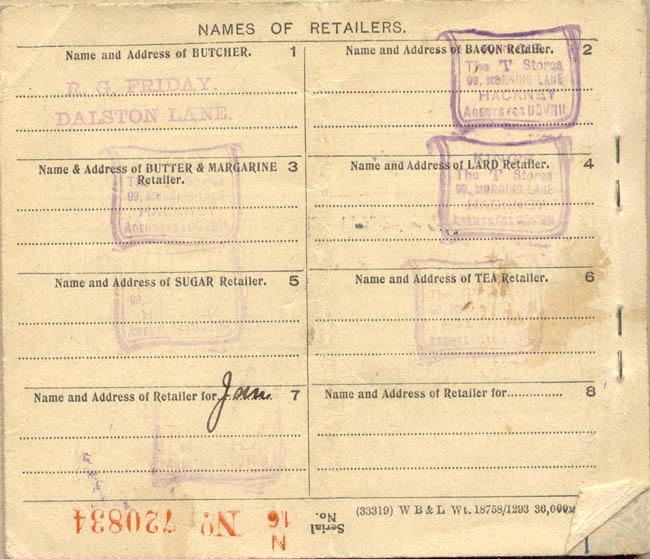 NAMES OF RETAILERS.
Name and Address of BUTCHER. 1
R. G. FRIDAY.
DALSTON LANE.
Name and Address of BACON Retailer. 2
The T Stores
99, MORNING LANE
HACKNEY
AGENTS FOR
Name & Address of BUTTER & MARGARINE 3
Retailer.
The T Stores
99, MORNING LANE
HACKNEY
AGENTS FOR
Name and Address of LARD Retailer. 4
The T Stores
99, MORNING LANE
HACKNEY
AGENTS FOR
Name and Address of SUGAR Retailer. 5
Name and Address of TEA Retailer. 6
Name and Address of Retailer for Jam 7
Name and Address of Retailer for.............. 8
(33319) W B & L Wt. 18758/1293 36,000M
Serial No.
N 16 No 720834